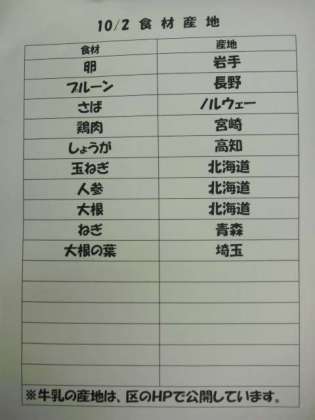 10/2 食材産地
食材 産地
卵 岩手
プルーン 長野
さば ノルウェー
鶏肉 宮崎
しょうが 高知
玉ねぎ 北海道
人参 北海道
大根 北海道
ねぎ 青森
大根の葉 埼玉
※牛乳の産地は、区のHPで公開しています。